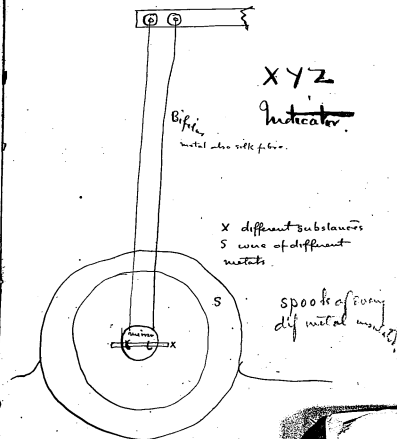 XYZ
Indicator.
Bifilar
metal also silk fibre.
X different substances
S wire of different
metals.
S
spools of every
dif metal
mirror
X